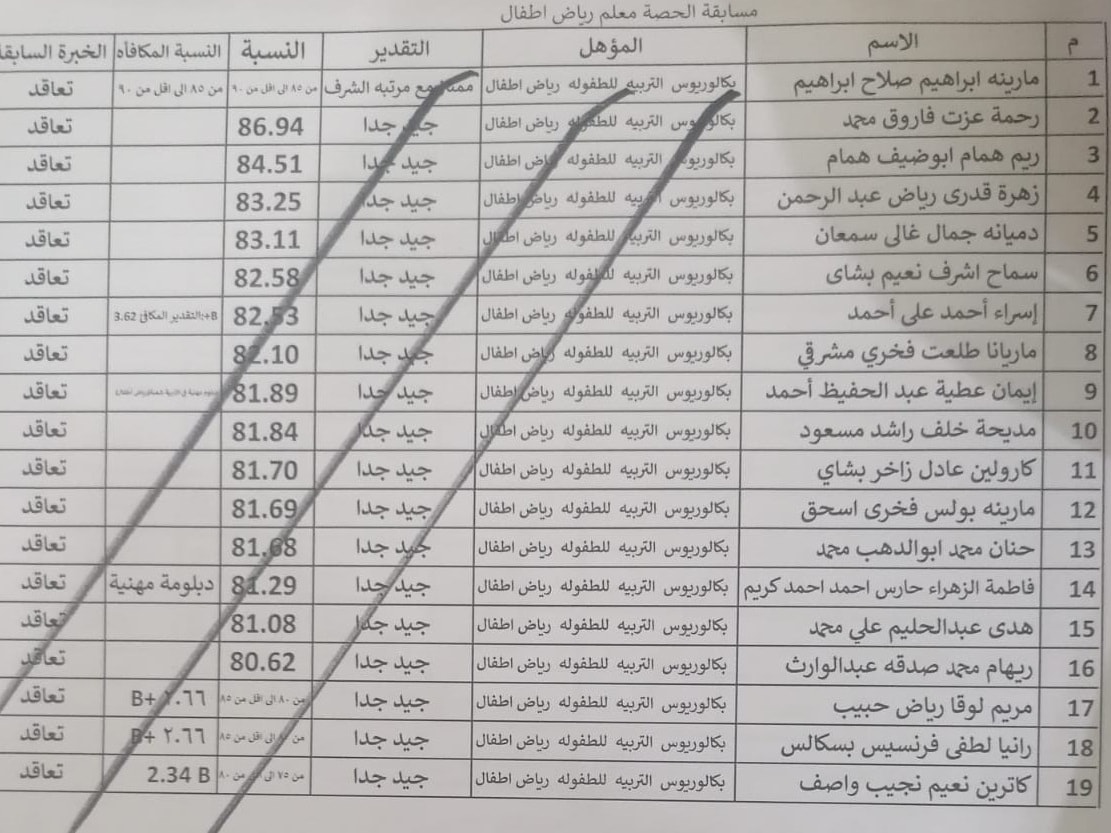 مسابقة الحصة معلم رياض اطفال
م الاسم المؤهل التقدير النسبة النسبة المكافأه الخبرة السابقة
1 مارينه ابراهيم صلاح ابراهيم بكالوريوس التربيه للطفوله رياض اطفال ممتاز مع مرتبه الشرف من ٨٥ الى اقل من ٩٠ من ٨٥ الى اقل من ٩٠ تعاقد
2 رحمة عزت فاروق محمد بكالوريوس التربيه للطفوله رياض اطفال جيد جدا 86.94 تعاقد
3 ريم همام ابوضيف همام بكالوريوس التربيه للطفوله رياض اطفال جيد جدا 84.51 تعاقد
4 زهرة قدرى رياض عبد الرحمن بكالوريوس التربيه للطفوله رياض اطفال جيد جدا 83.25 تعاقد
5 دميانه جمال غالى سمعان بكالوريوس التربيه للطفوله رياض اطفال جيد جدا 83.11 تعاقد
6 سماح اشرف نعيم بشاى بكالوريوس التربيه للطفوله رياض اطفال جيد جدا 82.58 تعاقد
7 إسراء أحمد على أحمد بكالوريوس التربيه للطفوله رياض اطفال جيد جدا 82.53 B+:التقدير المكافئ 3.62 تعاقد
8 ماريانا طلعت فخري مشرقي بكالوريوس التربيه للطفوله رياض اطفال جيد جدا 82.10 تعاقد
9 إيمان عطية عبد الحفيظ أحمد بكالوريوس التربيه للطفوله رياض اطفال جيد جدا 81.89 تعاقد
10 مديحة خلف راشد مسعود بكالوريوس التربيه للطفوله رياض اطفال جيد جدا 81.84 تعاقد
11 كارولين عادل زاخر بشاي بكالوريوس التربيه للطفوله رياض اطفال جيد جدا 81.70 تعاقد
12 مارينه بولس فخرى اسحق بكالوريوس التربيه للطفوله رياض اطفال جيد جدا 81.69 تعاقد
13 حنان محمد ابوالدهب محمد بكالوريوس التربيه للطفوله رياض اطفال جيد جدا 81.68 تعاقد
14 فاطمة الزهراء حارس احمد احمد كريم بكالوريوس التربيه للطفوله رياض اطفال جيد جدا 81.29 دبلومة مهنية تعاقد
15 هدى عبدالحليم علي محمد بكالوريوس التربيه للطفوله رياض اطفال جيد جدا 81.08 تعاقد
16 ريهام محمد صدقه عبدالوارث بكالوريوس التربيه للطفوله رياض اطفال جيد جدا 80.62 تعاقد
17 مريم لوقا رياض حبيب بكالوريوس التربيه للطفوله رياض اطفال جيد جدا من ٨٠ الى اقل من ٨٥ B+ ٢.٦٦ تعاقد
18 رانيا لطفى فرنسيس بسكالس بكالوريوس التربيه للطفوله رياض اطفال جيد جدا من ٨٠ الى اقل من ٨٥ B+ ٢.٦٦ تعاقد
19 كاترين نعيم نجيب واصف بكالوريوس التربيه للطفوله رياض اطفال جيد جدا من ٧٥ الى اقل من ٨٠ 2.34 B تعاقد